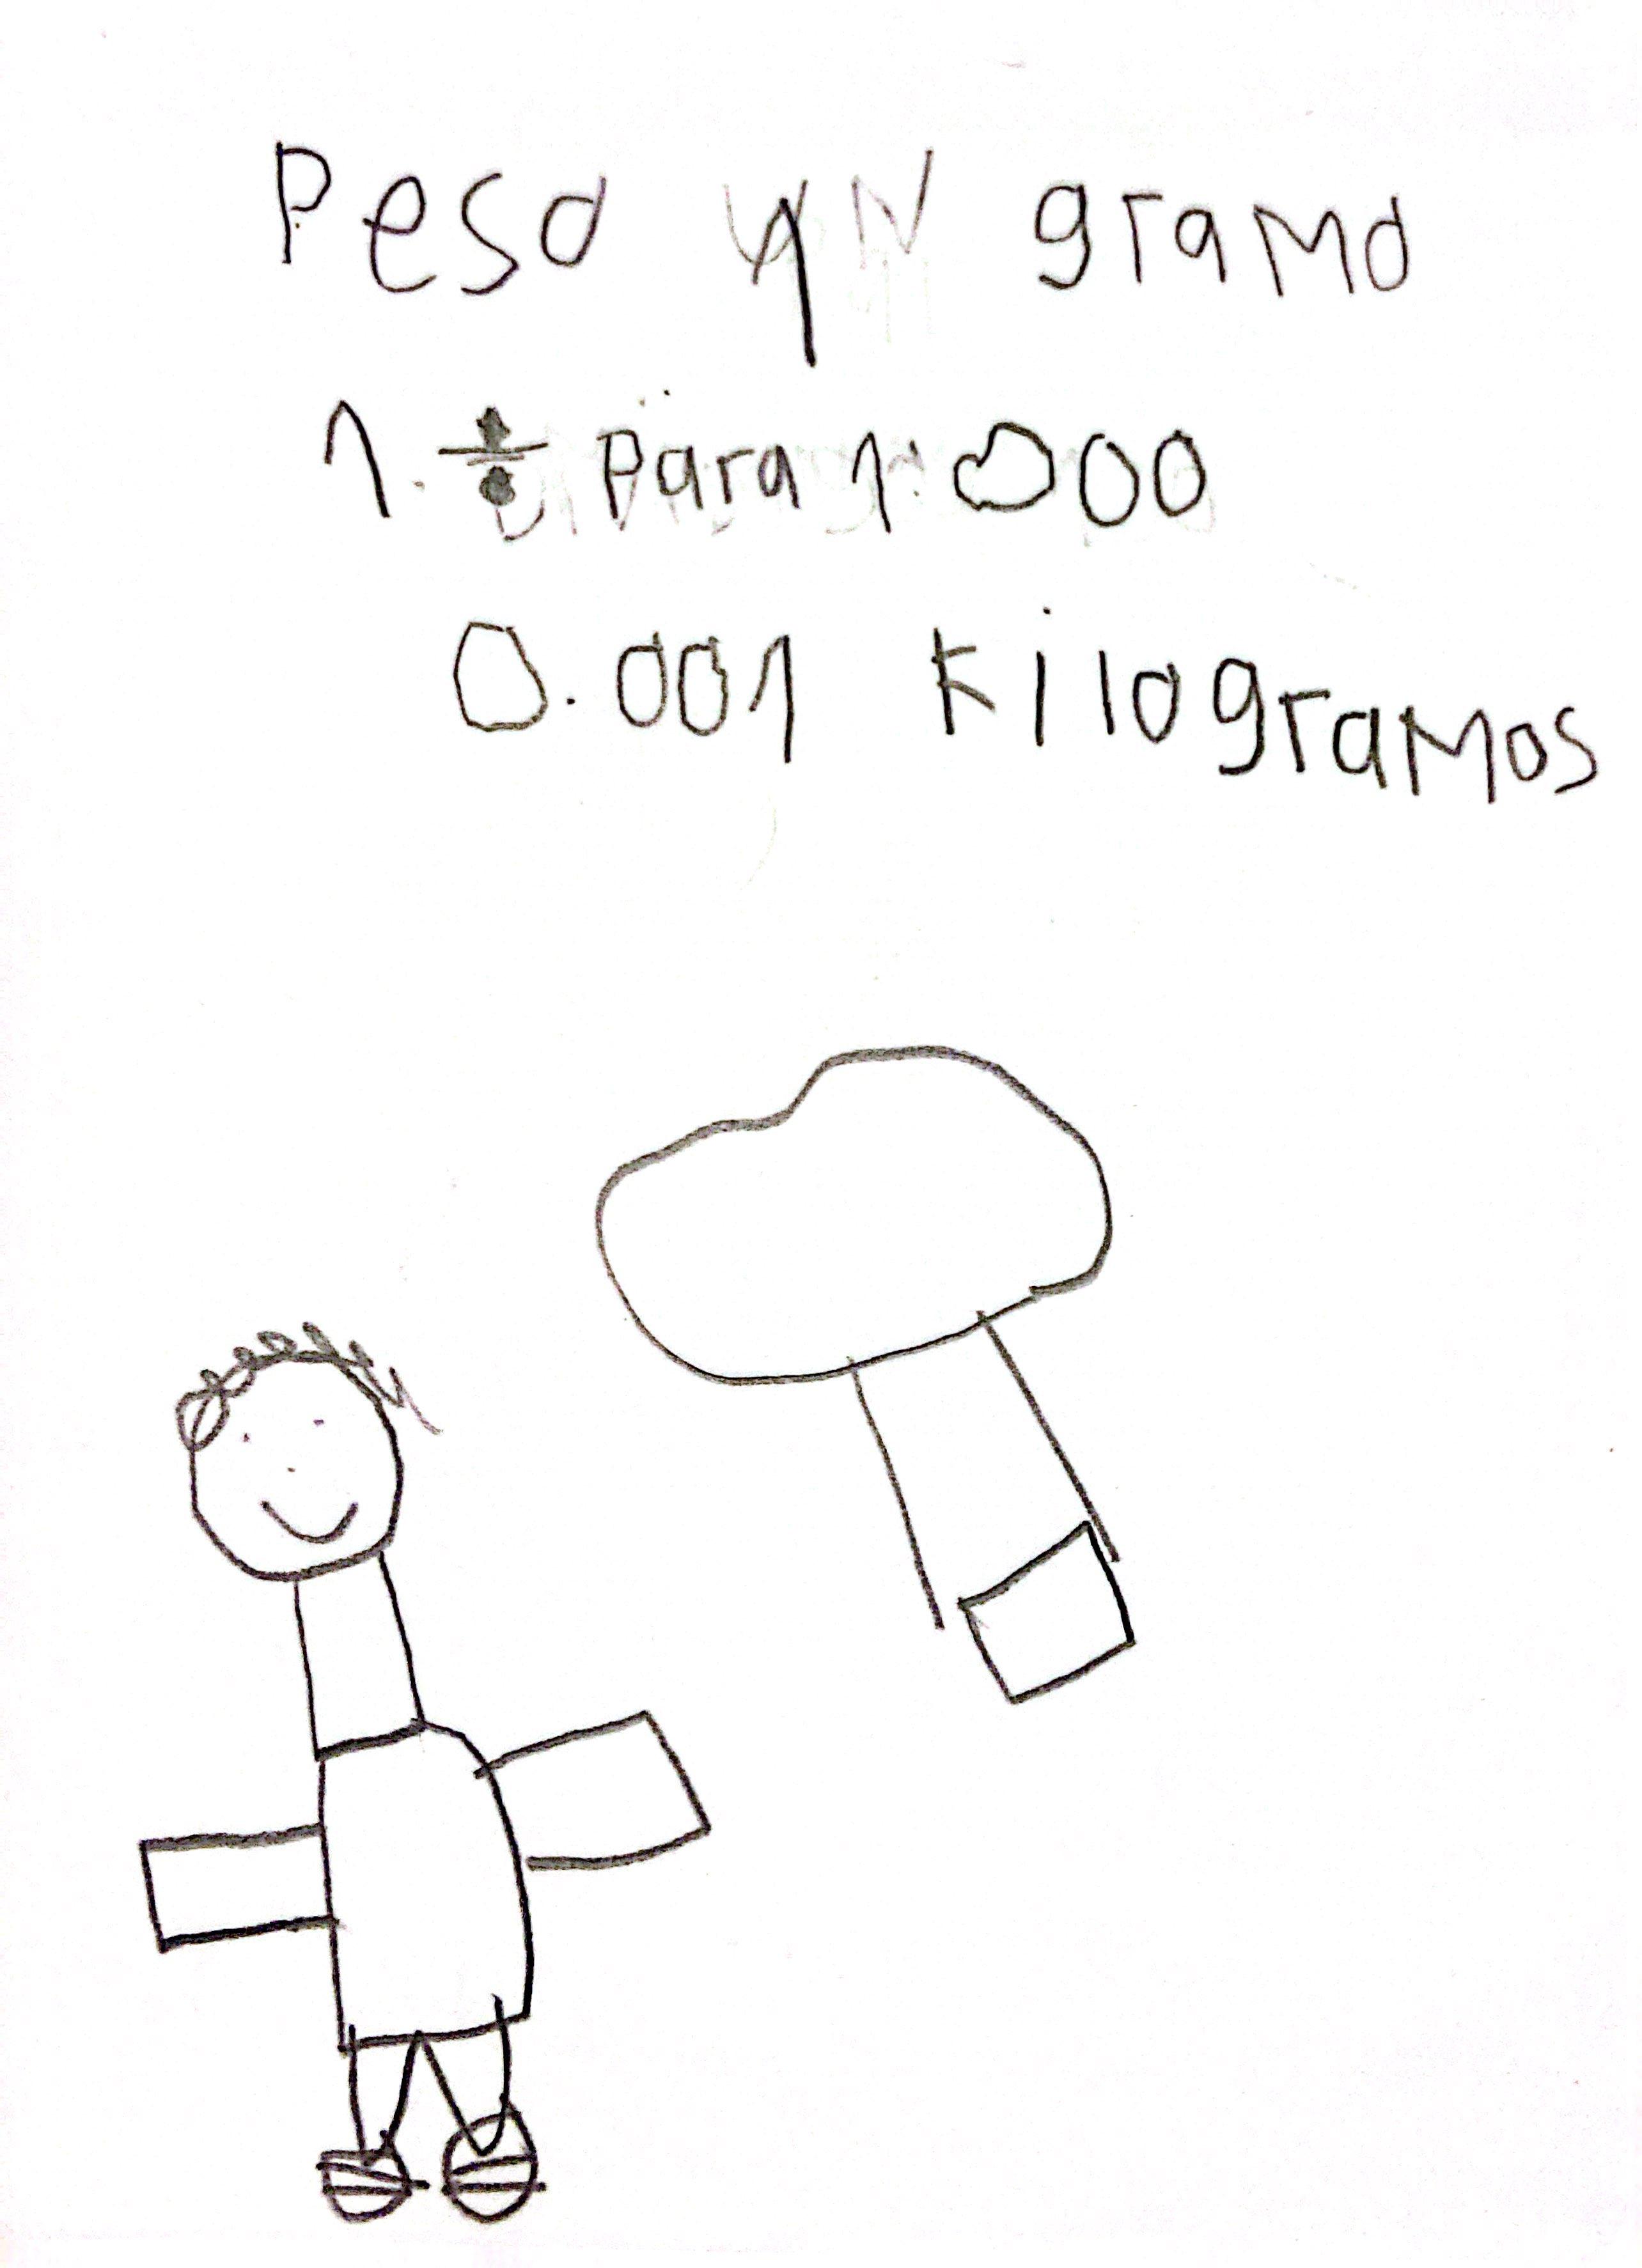 Peso un gramo
1. ÷ para 1.000
0.001 kilogramos